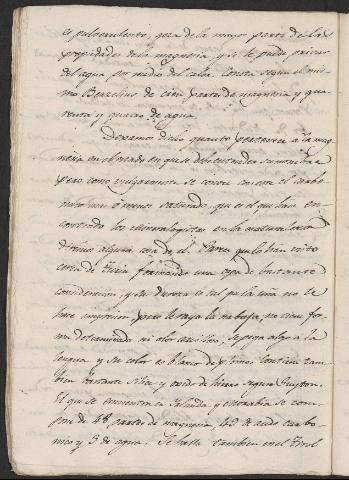 es pulverulento, goza de la mayor parte de las
propiedades de la magnesia, y se le puede privar
del agua por medio del calor. Consta segun el mis
mo Berzelius de cien partes de magnesia y qua
renta y quatro de agua.
Dexamos dicho quanto pertenece a la mag
nesia en el estado en que debe entenderse su nombre
pero como vulgarmente se conoce con este el carbo
nato mas ó menos
contrado los mineralogistas en la naturaleza
diremos alguna cosa de el. Parece que lo han visto
cerca de Turin formando una capa de bastante
consideracion, y su dureza es tal que la uña no le
hace impresion pero le raya la nabaja, no tiene for
ma determinada ni olor arcilloso. Se pega algo a la
lengua y su color es blanco de plomo. Contiene tam
bien bastante Silice y oxido de hierro segun Guyton.
El que se encuentra en y Moravia se com
pone de 48 partes de magnesia, 49 de acido carbo
nico y 3 de agua. Se halla tambien en el Tirol